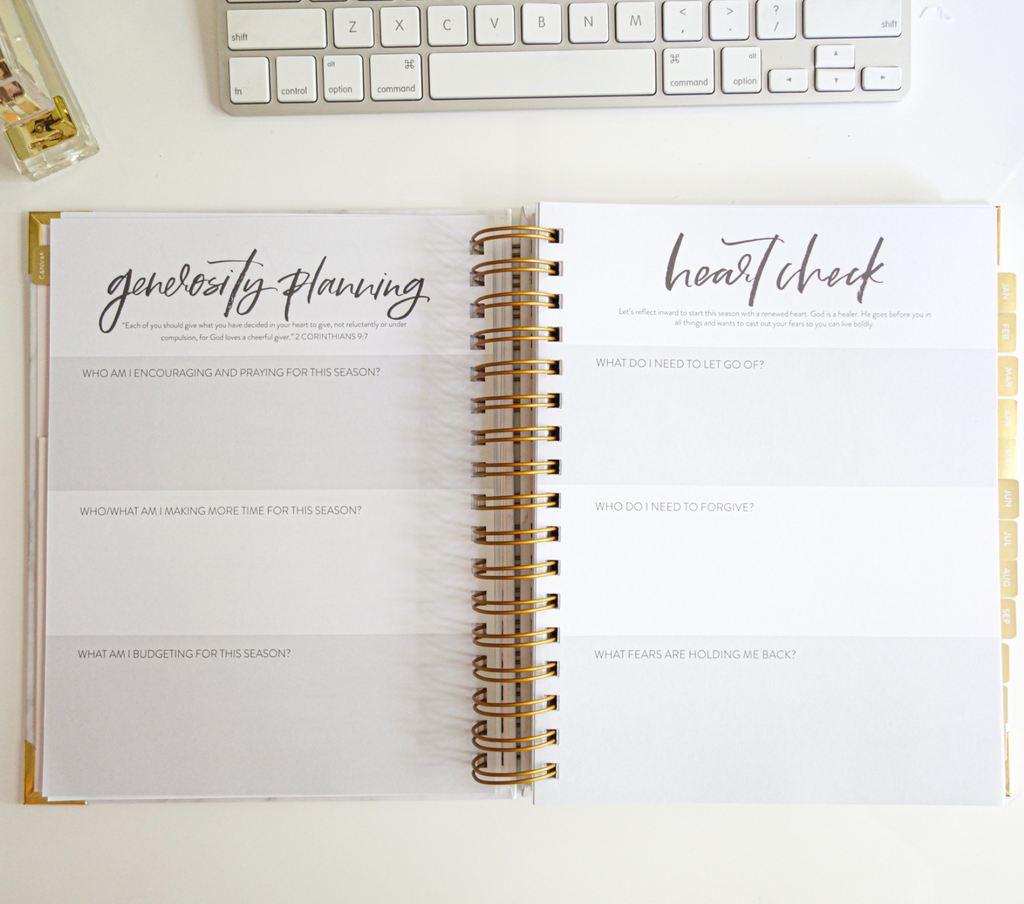 shift Z X C V B N M < , > . ? / shift
fn control alt option ⌘ command ⌘ command alt option
CANVAS
generosity planning
"Each of you should give what you have decided in your heart to give, not reluctantly or under
compulsion, for God loves a cheerful giver." 2 CORINTHIANS 9:7
WHO AM I ENCOURAGING AND PRAYING FOR THIS SEASON?
WHO/WHAT AM I MAKING MORE TIME FOR THIS SEASON?
WHAT AM I BUDGETING FOR THIS SEASON?
heart check
Let's reflect inward to start this season with a renewed heart. God is a healer. He goes before you in
all things and wants to cast out your fears so you can live boldly.
WHAT DO I NEED TO LET GO OF?
WHO DO I NEED TO FORGIVE?
WHAT FEARS ARE HOLDING ME BACK?
JAN
FEB
MAR
APR
JUN
JUL
AUG
SEP